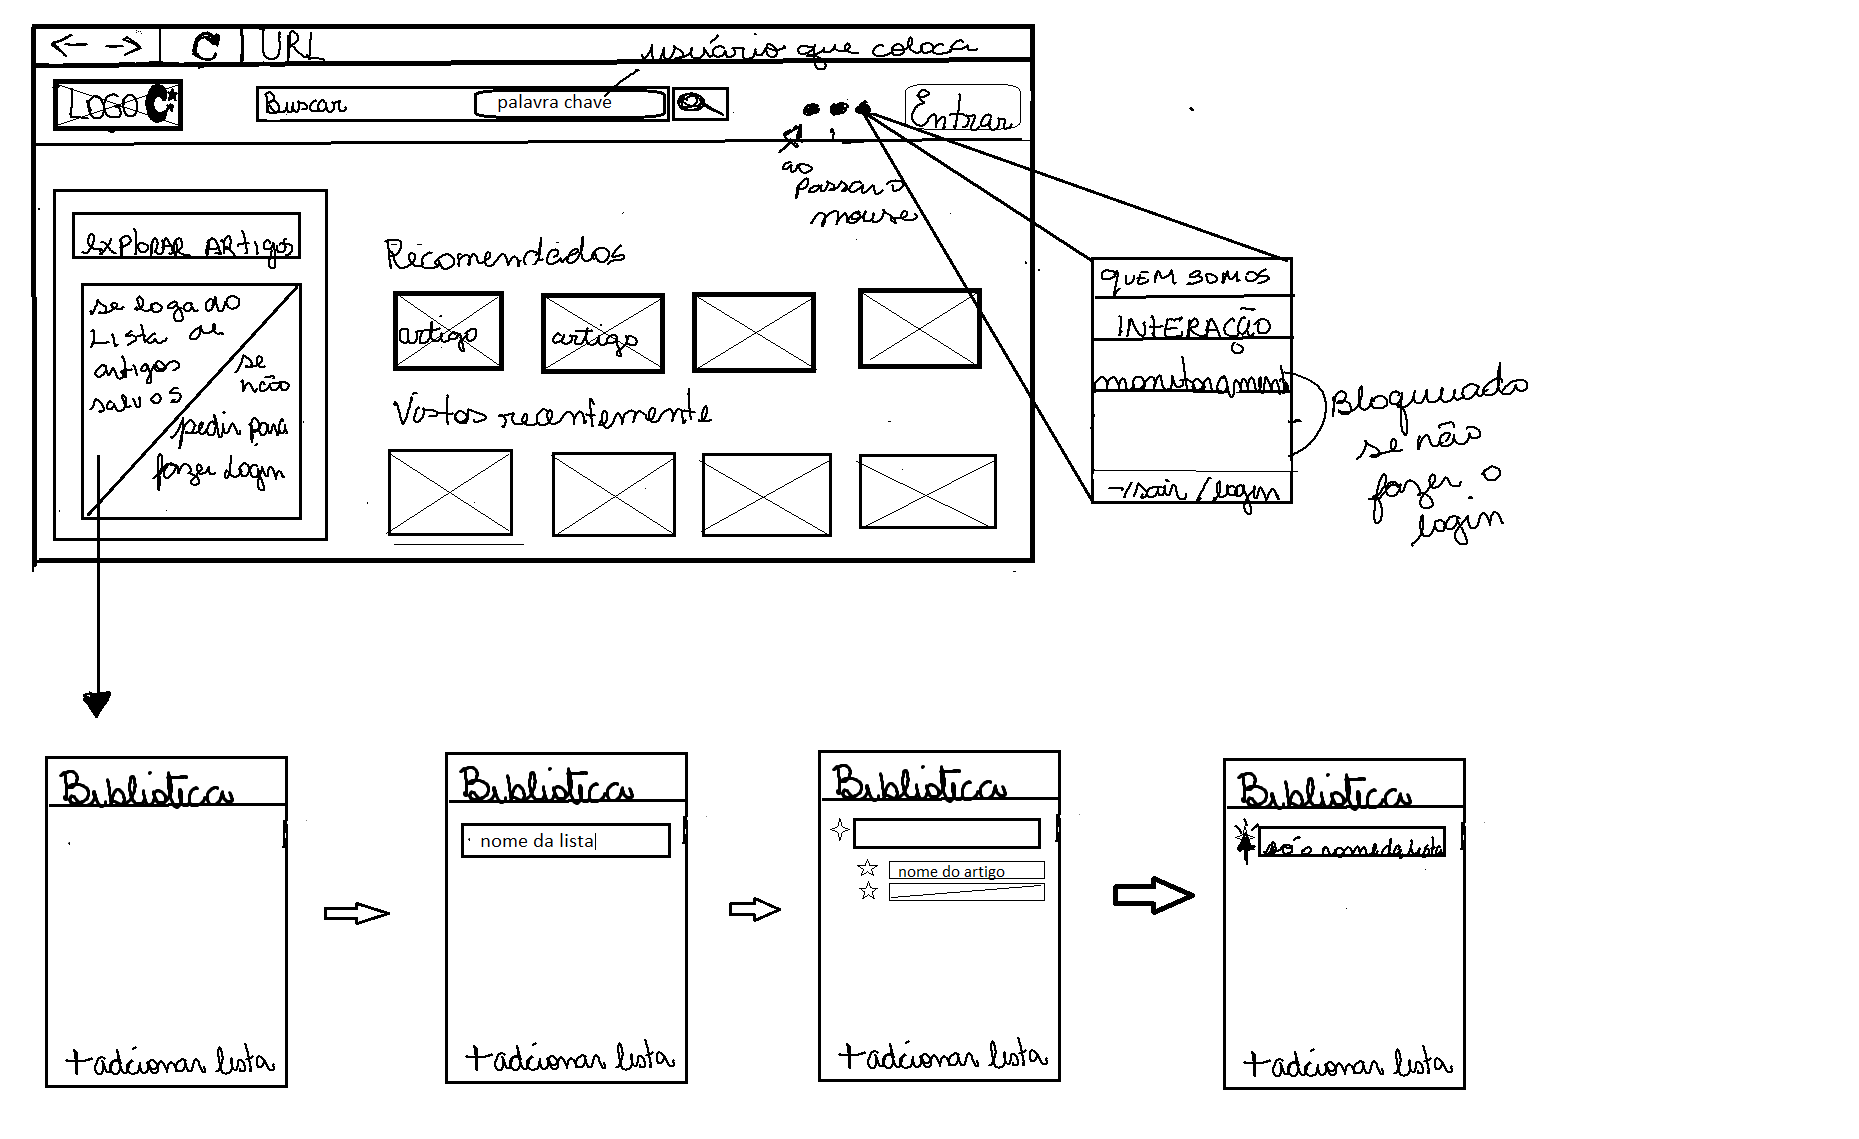 URL
usuário que coloca
LOGO
Buscar
palavra chave
Entrar
ao
Passar o
mouse
EXPLORAR ARtigos
se logado
Lista de
artigos
salvos
se
não
pedir para
fazer Login
Recomendados
artigo
artigo
Vistos recentemente
QUEM SOMOS
INTERAÇÃO
monitorament
Bloqueado
se não
fazer o
login
sair / login
Biblioteca
+ adcionar lista
Biblioteca
nome da lista
+ adcionar lista
Biblioteca
nome do artigo
+ adcionar lista
Biblioteca
só o nome da lista
+ adcionar lista